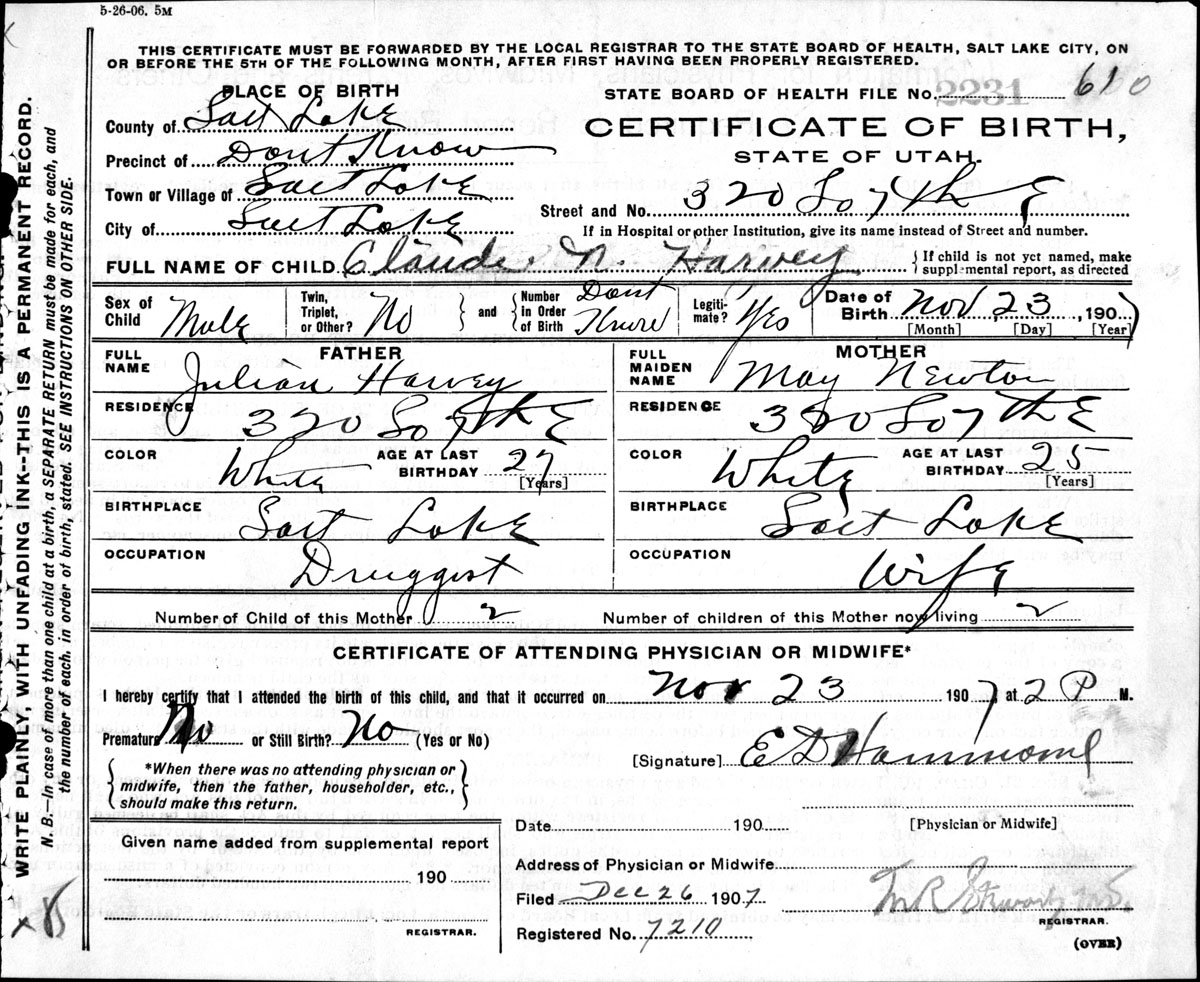 5-26-06. 5M
THIS CERTIFICATE MUST BE FORWARDED BY THE LOCAL REGISTRAR TO THE STATE BOARD OF HEALTH, SALT LAKE CITY, ON
OR BEFORE THE 5TH OF THE FOLLOWING MONTH, AFTER FIRST HAVING BEEN PROPERLY REGISTERED.
PLACE OF BIRTH
STATE BOARD OF HEALTH FILE No. 2231
County of Salt Lake
CERTIFICATE OF BIRTH,
Precinct of Dont Know
STATE OF UTAH.
Town or Village of Salt Lake
Street and No. 320 So 7th E
City of Salt Lake
If in Hospital or other Institution, give its name instead of Street and number.
FULL NAME OF CHILD Claude N. Harvey
{ If child is not yet named, make
supplemental report, as directed
Sex of Child Male
Twin, Triplet, or Other? No
and
Number in Order of Birth Dont Know
Legiti-mate? Yes
Date of Birth Nov 23, 1907
[Month] [Day] [Year]
FATHER
FULL NAME Julian Harvey
RESIDENCE 320 So 7th E
COLOR White
AGE AT LAST BIRTHDAY 27
[Years]
BIRTHPLACE Salt Lake
OCCUPATION Druggist
MOTHER
FULL MAIDEN NAME May Newton
RESIDENCE 320 So 7th E
COLOR White
AGE AT LAST BIRTHDAY 25
[Years]
BIRTHPLACE Salt Lake
OCCUPATION Wife
Number of Child of this Mother 2
Number of children of this Mother now living 2
CERTIFICATE OF ATTENDING PHYSICIAN OR MIDWIFE*
I hereby certify that I attended the birth of this child, and that it occurred on Nov 23 1907 at 2 P M.
Premature No or Still Birth? No (Yes or No)
[Signature] E D Hammond
*When there was no attending physician or
midwife, then the father, householder, etc.,
should make this return.
Date 190
[Physician or Midwife]
Given name added from supplemental report
190
REGISTRAR.
Address of Physician or Midwife
Filed Dec 26 1907
REGISTRAR.
Registered No. 7210
(OVER)
WRITE PLAINLY, WITH UNFADING INK--THIS IS A PERMANENT RECORD.
N. B.—In case of more than one child at a birth, a SEPARATE RETURN must be made for each, and
the number of each, in order of birth, stated. SEE INSTRUCTIONS ON OTHER SIDE.